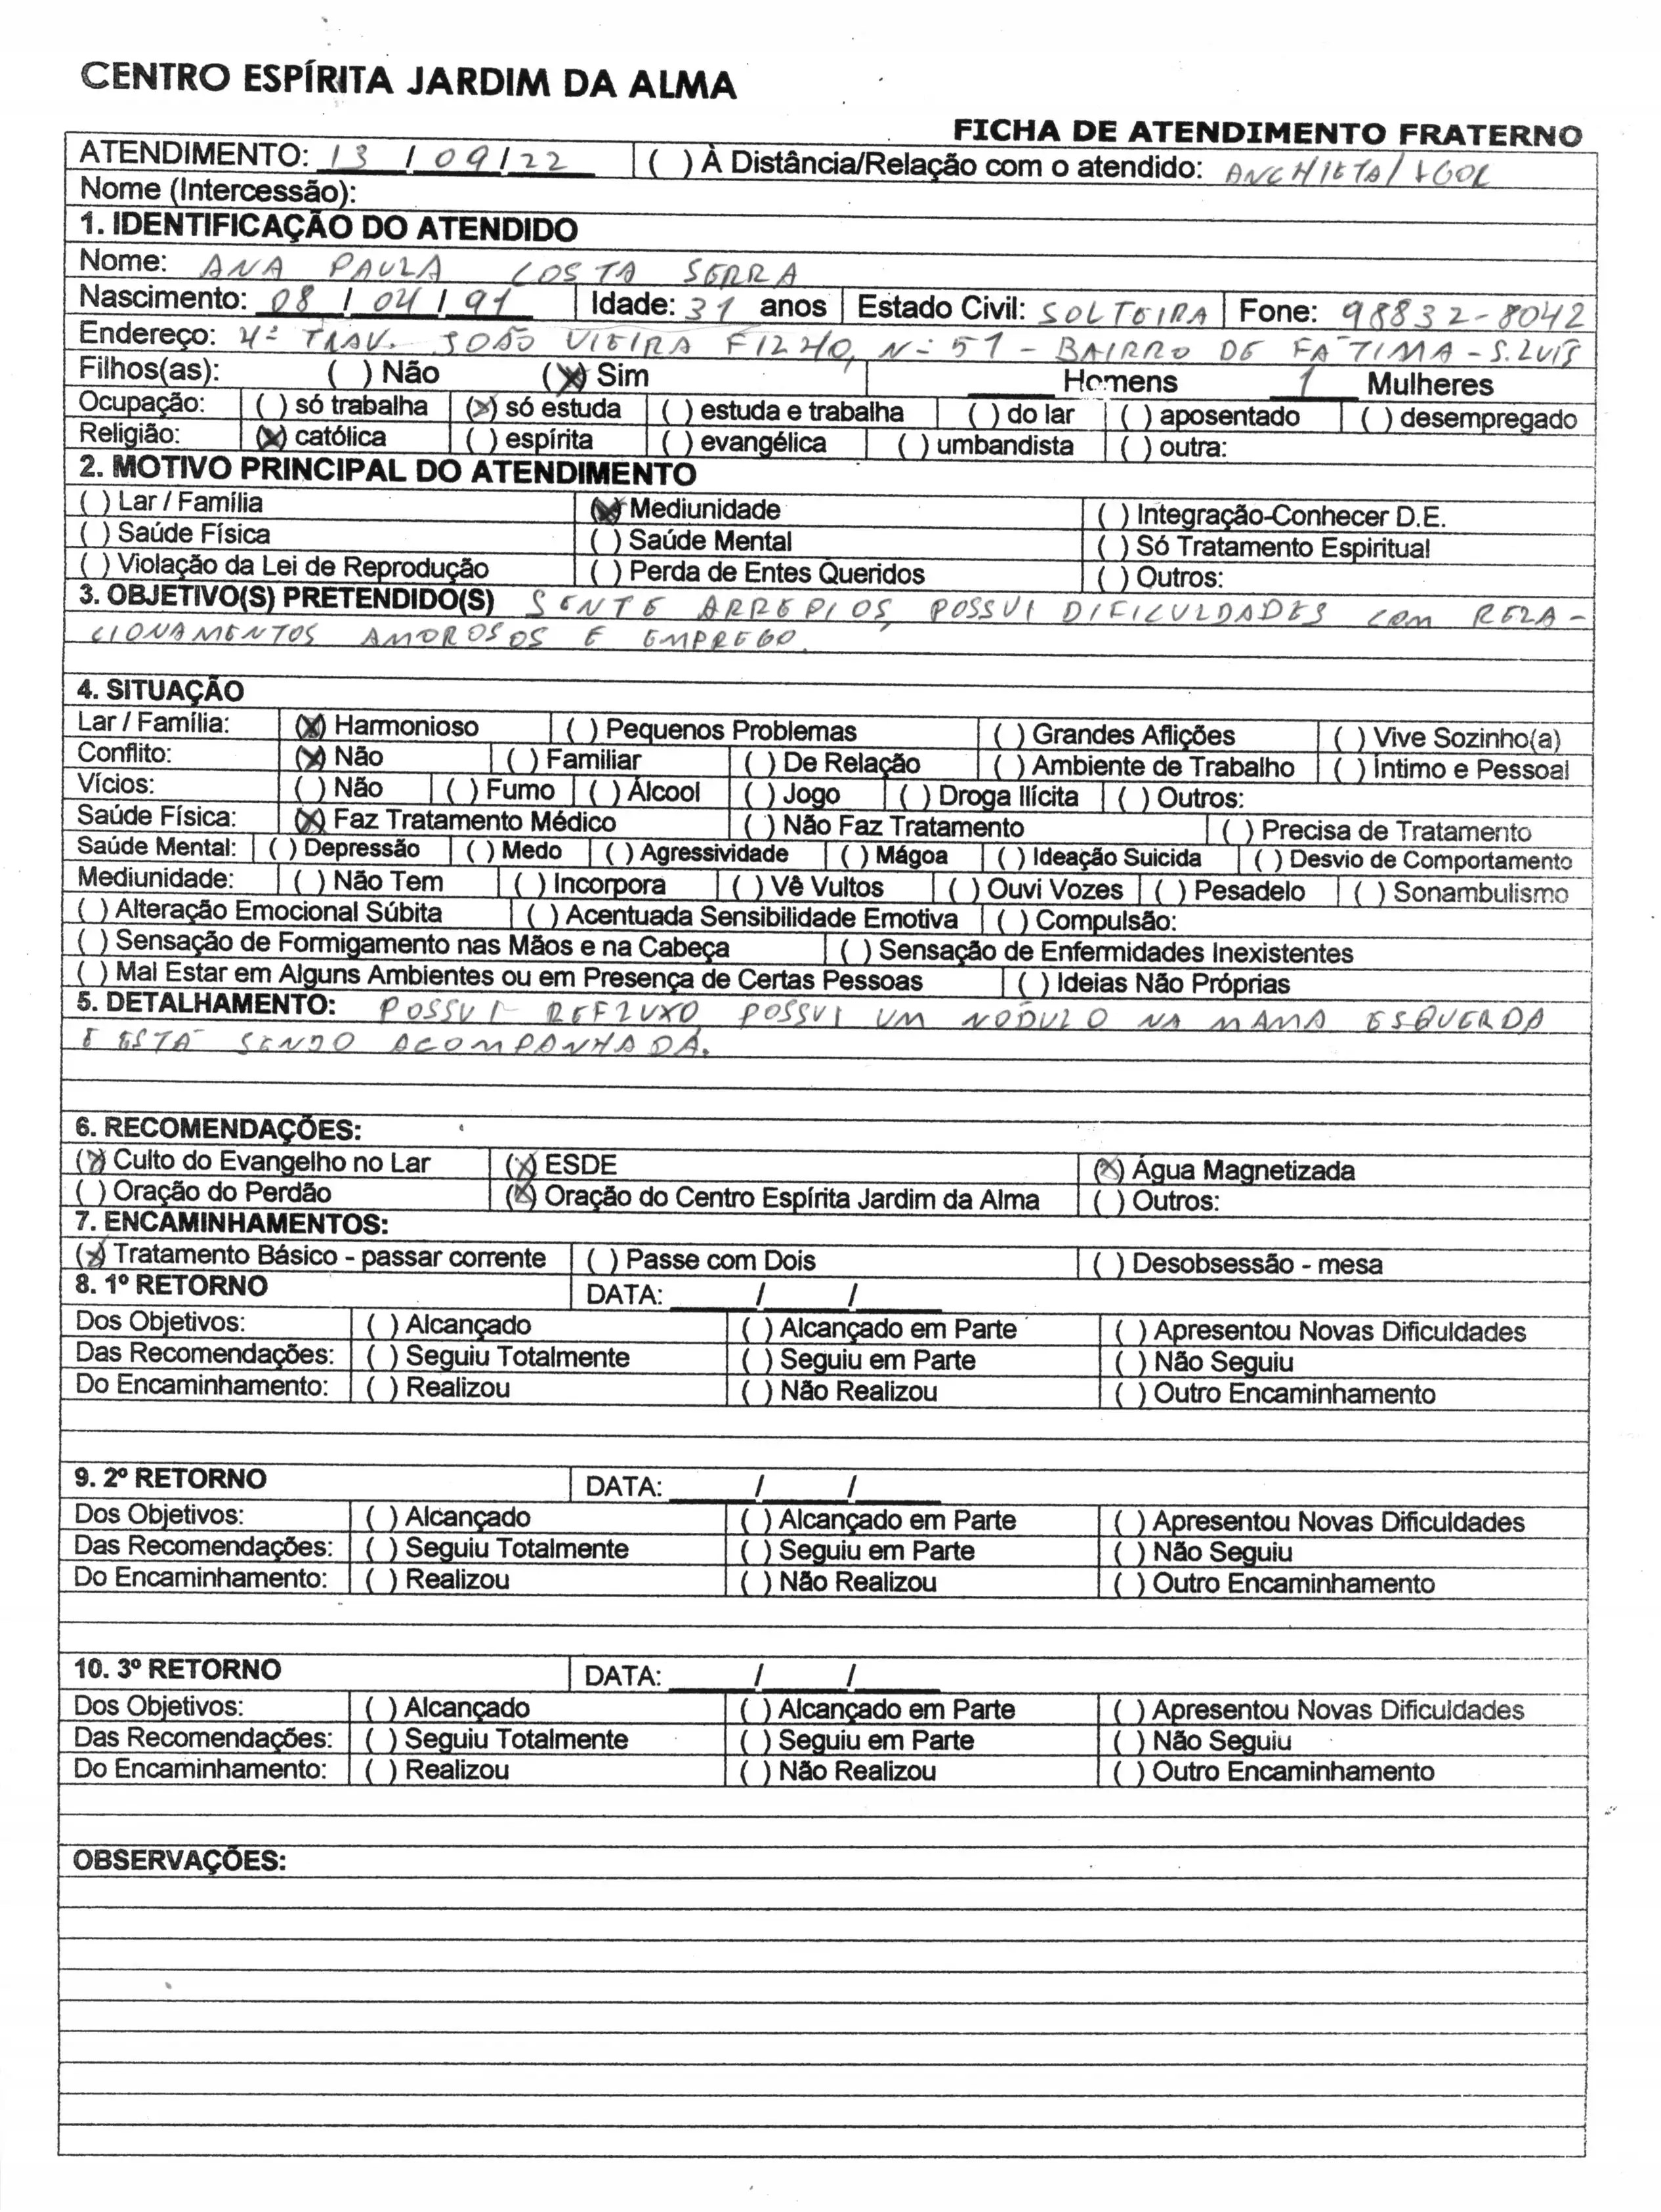 CENTRO ESPÍRITA JARDIM DA ALMA
FICHA DE ATENDIMENTO FRATERNO
ATENDIMENTO: 13 / 09 / 22 ( ) À Distância/Relação com o atendido: ANCHIETA/IGOR
Nome (Intercessão):
1. IDENTIFICAÇÃO DO ATENDIDO
Nome: ANA PAULA COSTA SERRA
Nascimento: 08 / 04 / 91 Idade: 31 anos Estado Civil: SOLTEIRA Fone: 98832-8042
Endereço: 4ª TRAV. JOÃO VIEIRA FILHO, Nº 51 - BAIRRO DE FÁTIMA - S. LUÍS
Filhos(as): ( ) Não (X) Sim ____ Homens 1 Mulheres
Ocupação: ( ) só trabalha (X) só estuda ( ) estuda e trabalha ( ) do lar ( ) aposentado ( ) desempregado
Religião: (X) católica ( ) espírita ( ) evangélica ( ) umbandista ( ) outra:
2. MOTIVO PRINCIPAL DO ATENDIMENTO
( ) Lar / Família (X) Mediunidade ( ) Integração-Conhecer D.E.
( ) Saúde Física ( ) Saúde Mental ( ) Só Tratamento Espiritual
( ) Violação da Lei de Reprodução ( ) Perda de Entes Queridos ( ) Outros:
3. OBJETIVO(S) PRETENDIDO(S) SENTE ARREPIOS, POSSUI DIFICULDADES COM RELA-
CIONAMENTOS AMOROSOS E EMPREGO.
4. SITUAÇÃO
Lar / Família: (X) Harmonioso ( ) Pequenos Problemas ( ) Grandes Aflições ( ) Vive Sozinho(a)
Conflito: (X) Não ( ) Familiar ( ) De Relação ( ) Ambiente de Trabalho ( ) Íntimo e Pessoal
Vícios: ( ) Não ( ) Fumo ( ) Álcool ( ) Jogo ( ) Droga Ilícita ( ) Outros:
Saúde Física: (X) Faz Tratamento Médico ( ) Não Faz Tratamento ( ) Precisa de Tratamento
Saúde Mental: ( ) Depressão ( ) Medo ( ) Agressividade ( ) Mágoa ( ) Ideação Suicida ( ) Desvio de Comportamento
Mediunidade: ( ) Não Tem ( ) Incorpora ( ) Vê Vultos ( ) Ouvi Vozes ( ) Pesadelo ( ) Sonambulismo
( ) Alteração Emocional Súbita ( ) Acentuada Sensibilidade Emotiva ( ) Compulsão:
( ) Sensação de Formigamento nas Mãos e na Cabeça ( ) Sensação de Enfermidades Inexistentes
( ) Mal Estar em Alguns Ambientes ou em Presença de Certas Pessoas ( ) Ideias Não Próprias
5. DETALHAMENTO: POSSUI REFLUXO POSSUI UM NÓDULO NA MAMA ESQUERDA
E ESTÁ SENDO ACOMPANHADA.
6. RECOMENDAÇÕES:
(X) Culto do Evangelho no Lar (X) ESDE (X) Água Magnetizada
( ) Oração do Perdão (X) Oração do Centro Espírita Jardim da Alma ( ) Outros:
7. ENCAMINHAMENTOS:
(X) Tratamento Básico - passar corrente ( ) Passe com Dois ( ) Desobsessão - mesa
8. 1º RETORNO DATA: ____/____/____
Dos Objetivos: ( ) Alcançado ( ) Alcançado em Parte ( ) Apresentou Novas Dificuldades
Das Recomendações: ( ) Seguiu Totalmente ( ) Seguiu em Parte ( ) Não Seguiu
Do Encaminhamento: ( ) Realizou ( ) Não Realizou ( ) Outro Encaminhamento
9. 2º RETORNO DATA: ____/____/____
Dos Objetivos: ( ) Alcançado ( ) Alcançado em Parte ( ) Apresentou Novas Dificuldades
Das Recomendações: ( ) Seguiu Totalmente ( ) Seguiu em Parte ( ) Não Seguiu
Do Encaminhamento: ( ) Realizou ( ) Não Realizou ( ) Outro Encaminhamento
10. 3º RETORNO DATA: ____/____/____
Dos Objetivos: ( ) Alcançado ( ) Alcançado em Parte ( ) Apresentou Novas Dificuldades
Das Recomendações: ( ) Seguiu Totalmente ( ) Seguiu em Parte ( ) Não Seguiu
Do Encaminhamento: ( ) Realizou ( ) Não Realizou ( ) Outro Encaminhamento
OBSERVAÇÕES: